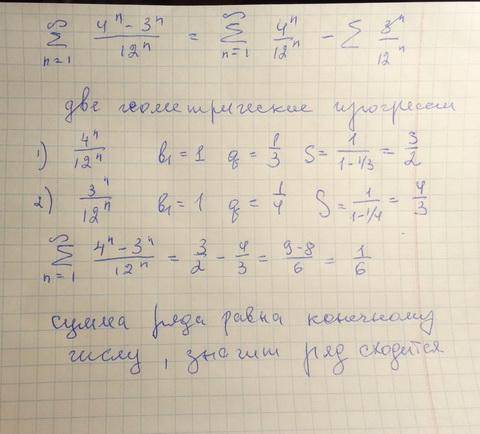 ∞ ∑ n=1 (4ⁿ − 3ⁿ)/12ⁿ = ∞ ∑ n=1 4ⁿ/12ⁿ − ∑ 3ⁿ/12ⁿ
две геометрические прогрессии
1) 4ⁿ/12ⁿ b₁ = 1 q = 1/3 S = 1/(1−1/3) = 3/2
2) 3ⁿ/12ⁿ b₁ = 1 q = 1/4 S = 1/(1−1/4) = 4/3
∞ ∑ n=1 (4ⁿ − 3ⁿ)/12ⁿ = 3/2 − 4/3 = (9−8)/6 = 1/6
сумма ряда равна конечному
числу, значит ряд сходится